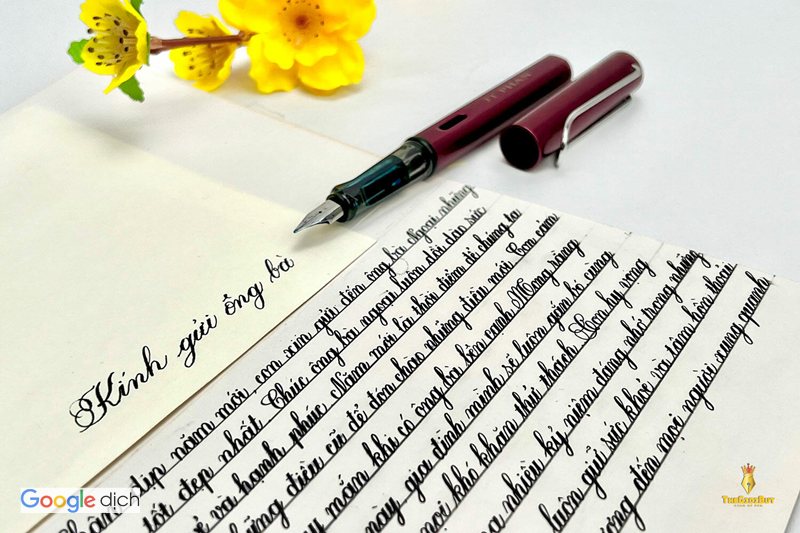 Kính gửi ông bà
dịp năm mới con xin gửi đến ông bà ngoại những
tốt đẹp nhất Chúc ông bà ngoại luôn dồi dào sức
và hạnh phúc Năm mới là thời điểm để chúng ta
những điều cũ để đón chào những điều mới Con cảm
may mắn khi có ông bà bên cạnh Mong rằng
này gia đình mình sẽ luôn gắn bó cùng
mọi khó khăn thử thách Con hy vọng
nhiều kỷ niệm đáng nhớ trong những
luôn giữ sức khoẻ và tâm hồn thoải
đến mọi người xung quanh
Google dịch